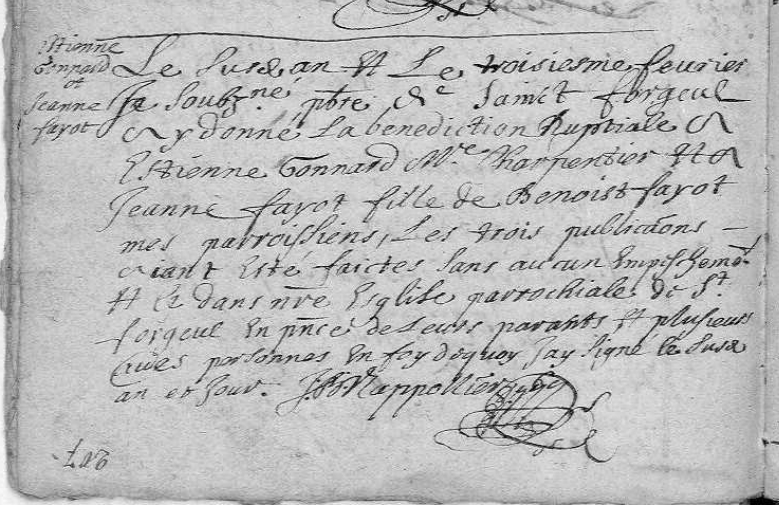 Estienne
Gonnard
et
Jeanne
fayot
Le susd an et Le troisiesme feurier
Je soubzné pbre de Sainct forgeul
ay donné La benediction Nuptiale a
Estienne Gonnard Mre Charpentier et a
Jeanne fayot fille de Benoist fayot
mes parroissiens, Les trois publicãons
aiant esté faictes sans aucun empeschemt
et ce dans nre Esglise parrochiale de St
forgeul En pnce de Leurs parants et plusieurs
aues personnes En foy dequoy Jay signé le susd
an et Jour.